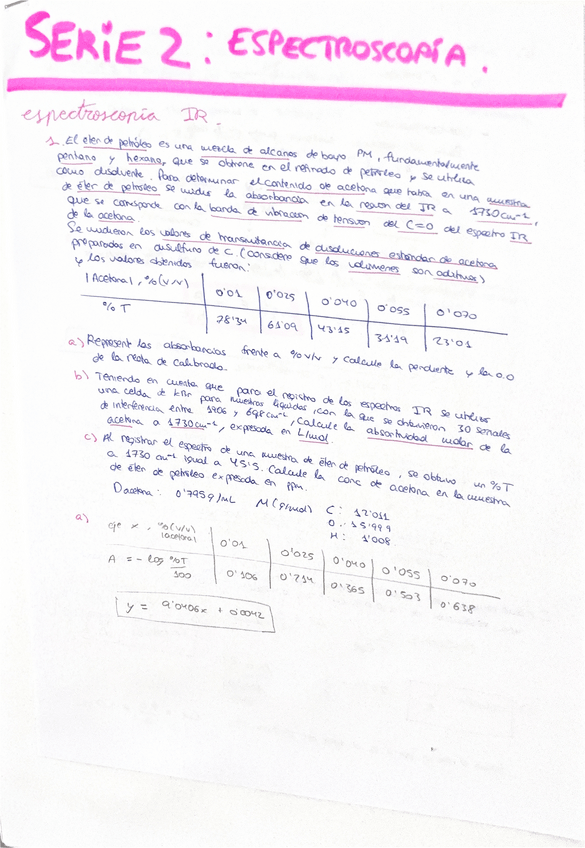 SERIE 2: ESPECTROSCOPÍA.
espectroscopía IR.
1. El éter de petróleo es una mezcla de alcanos de bajo PM, fundamentalmente
pentano y hexano, que se obtiene en el refinado de petróleo y se utiliza
como disolvente. Para determinar el contenido de acetona que había en una muestra
de éter de petróleo se midió la absorbancia en la región del IR a 1730 cm-1,
que se corresponde con la banda de vibración de tensión del C=O del espectro IR
de la acetona.
Se midieron los valores de transmitancia de disoluciones estándar de acetona
preparados en disulfuro de C. (considere que los volúmenes son aditivos)
y los valores obtenidos fueron:
[Acetona], % (v/v) 0'01 0'025 0'040 0'055 0'070
% T 78'34 61'09 43'15 31'19 23'01
a) Represent las absorbancias frente a % v/v y calcule la pendiente y la o.o
de la recta de calibrado.
b) Teniendo en cuenta que para el registro de los espectros IR se utilizó
una celda de KBr para muestras líquidas, con la que se obtuvieron 30 señales
de interferencia entre 1906 y 698 cm-1, Calcule la absortividad molar de la
acetona a 1730 cm-1, expresada en L/mol.
c) Al registrar el espectro de una muestra de éter de petróleo, se obtuvo un %T
a 1730 cm-1 igual a 45'5. Calcule la conc de acetona en la muestra
de éter de petróleo expresada en ppm.
Dacetona: 0'795 g/mL M (g/mol) C: 12'011
O: 15'999
H: 1'008
a) eje x, % (v/v) [acetona] 0'01 0'025 0'040 0'055 0'070
A = - log %T/100 0'106 0'214 0'365 0'503 0'638
y = 9'0406x + 0'0042